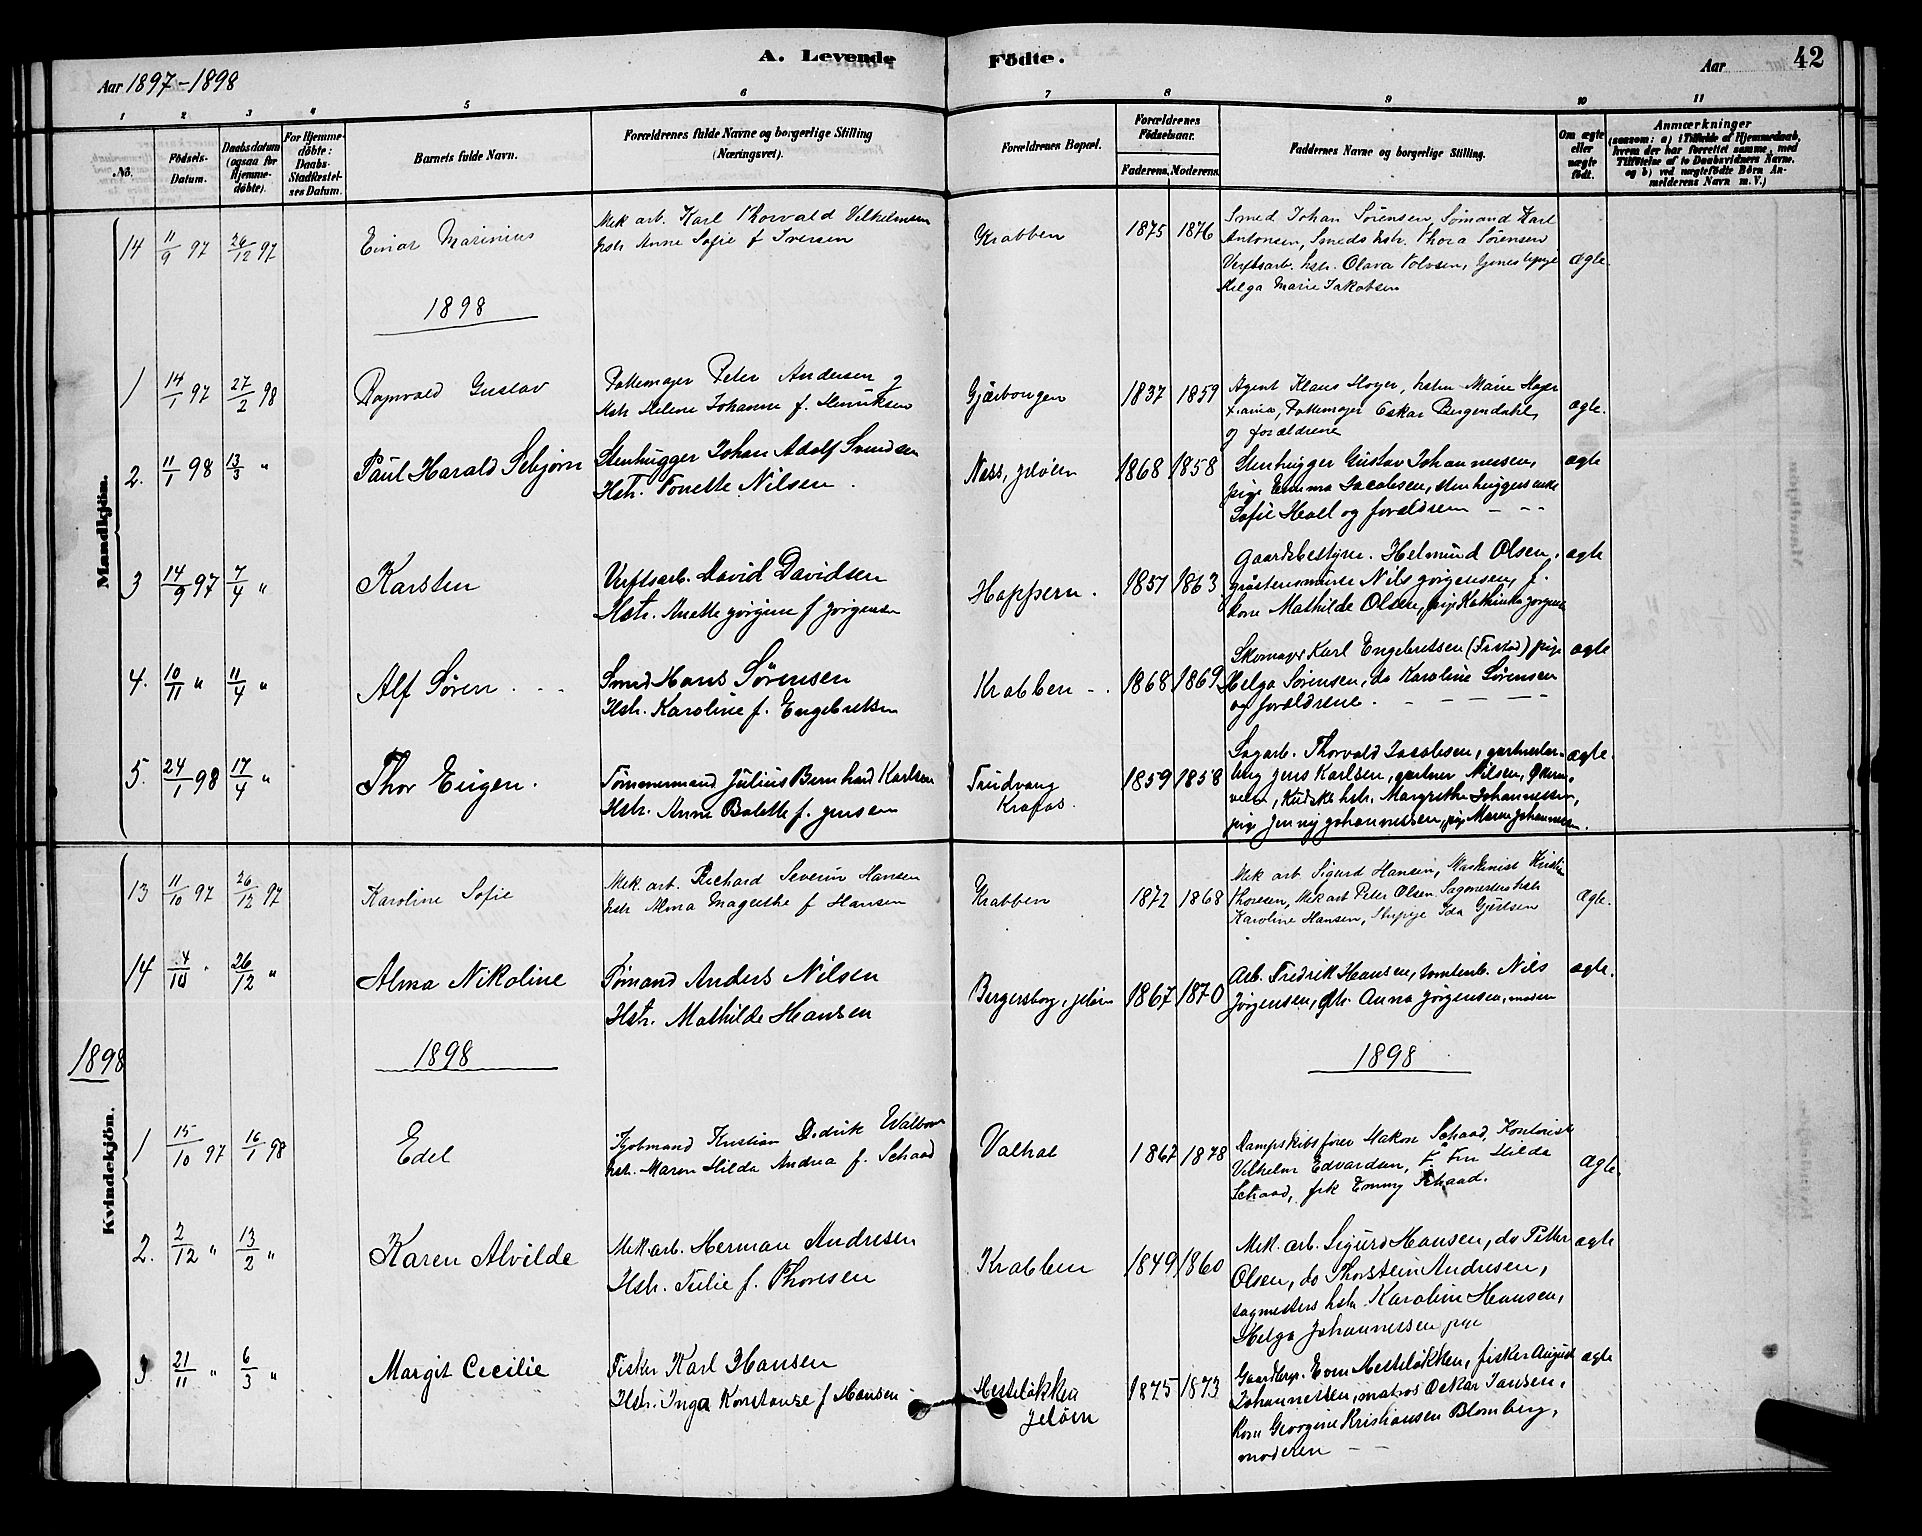 Aar 1897-1898
A. Levende Födte.
Aar
42
1 2 3 4 5 6 7 8 9 10 11
No.
Födsels-Datum.
Daabsdatum (ogsaa for Hjemme-döbte).
For Hjemme-döbte: Daabs-Stadfæstel-ses Datum.
Barnets fulde Navn.
Forældrenes fulde Navne og borgerlige Stilling (Næringsvei).
Forældrenes Bopæl.
Forældrenes Födselsaar.
Faderens. Moderens.
Faddernes Navne og borgerlige Stilling.
Om ægte eller uægte födt.
Anmærkninger
(saasom: a) i Tilfælde af Hjemmedaab, hvem der har forrettet samme, med Tilföielse af to Daabsvidners Navne, og b) ved uægtefödte Börn An-melderens Navn m. V.)
Mandkjön.
14 11/9 97 26/12 97 Einar Marinius
Mek arb. Karl Thorvald Vilhelmsen
hstr Anne Sofie f Iversen
Krabben 1875 1876
Smed Johan Sørensen, Sømand Karl
Antonsen, Smeds hstr. Thora Sørensen
Verftsarb. hstr. Olava
Helga Marie Jakobsen
ægte.
1898
1 14/1 97 27/2 98 Ragnvald Gustav
Pottemager Peter Andersen og
Hstr Helene Johanne f. Henriksen
Gjærbongen 1837 1859
Agent Klaus Hoyer, hstru Marie Hoyer
Pottemager Oskar Bergendahl,
og forældrene
ægte.
2. 11/1 98 13/3 " Paul Harald Sebjørn
Stenhugger Johan Adolf Svendsen
Hstr. Tonette Nilsen.
Næss, Jeløen 1868 1858
Stenhugger Gustav Johannessen,
pige Emma Jacobsen, stenhuggerenke
Sofie Hoell og forældrene - - -
ægte
3 14/9 97 7/4 " Karsten
Verftsarb. David Davidsen
Hstr. Anette Jörgine f Jörgensen
Hoppern. 1857 1863
Gaardsbestyrer. Helmund Olsen,
Nils Jörgensen, f.
kone Mathilde Olsen, pige Kathinka Jörgens
ægte
4. 10/11 " 11/4 " Alf Sören . - -
Smed Hans Sørensen
Hstr. Karoline f. Engebretsen
Krabben - . 1868 1869
Skomager Karl Engebretsen (Fristad) pige
Helga Sørensen, do Karoline Sørensen
og forældrene. - - - -
ægte
5. 24/1 98 17/4 " Thor Eugen.
Tømmermand Julius Bernhard Karlsen
Hstr. Anne Bolette f. Jensen
Trudvang
Krapfos. 1859 1858
Sagarb. Thorvald Jacobsen,
Jens Karlsen, gartner Nilsen,
Kudske hstr. Margrethe Johannessen,
pige Jenny Johannessen, pige Maren Johannesen.
ægte.
Kvindekjön.
13 11/10 97 26/12 97 Karoline Sofie
Mek. arb. Richard Severin Hansen
hstr Alma Magrethe f Hansen
Krabben 1872 1868
Mek arb Sigurd Hansen, Maskinist Kristian
Thoresen, Mek arb Peter Olsen Sagmesters hstr
Karoline Hansen, Ida Gjertsen
ægte.
14 4/10 " 26/12 " Alma Nikoline
Sømand Anders Nilsen
Hstr. Mathilde Hansen
Bergersborg, Jeløen 1867 1870
Arb. Fredrik Hansen, tomtearb. Nils
Jørgensen, Anna Jørgensen, moderen
ægte.
1898
1898
1898
1 15/10 97 16/1 98 Edel
Kjøbmand Kristian Didrik
hstr. Maren Hilda Andrea f. Schaad
Valhal 1867 1878
Dampskibsfører Hakon Schaad, Kontorist
Vilhelm Edvardsen, Fru Hilda
Schaad, frk Emmy Schaad.
ægte.
2. 2/12 " 13/2 " Karen Alvilde
Mek. arb. Herman Andresen
Hstr. Julie f. Thoresen
Krabben 1849 1860
Mek. arb. Sigurd Hansen, do Petter
Olsen, do Thorstein Andresen,
sagmesters hstr Karoline Hansen,
Helga Johannessen pige
ægte
3 21/11 " 6/3 " Margit Cecilie
Fisker Karl Hansen
Hstr. Inga Konstanse f Hansen
Hesteløkken
Jeløen 1875 1873
Gaardbrgr. Even Hesteløkken, fisker August
Johannessen, matros Oskar Jansen,
kone Georgine Kristiansen Blomberg,
moderen - -
ægte